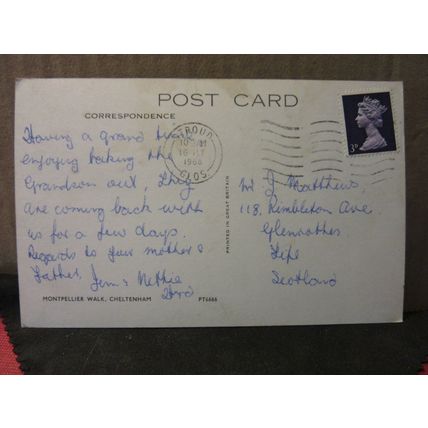 POST CARD
CORRESPONDENCE
Having a grand time
enjoying taking the
Grandson out, They
are coming back with
us for a few days.
Regards to your mother &
father, Jem & Nettie
MONTPELLIER WALK, CHELTENHAM PT6666
STROUD
1968
GLOS
3D
PRINTED IN GREAT BRITAIN
Mr J. Matthews,
118, Rimbleton Ave
Glenrothes
Fife
Scotland